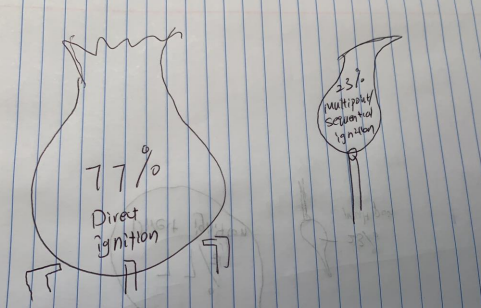 77%
Direct
ignition
23%
Multipoint/
sequential
ignition